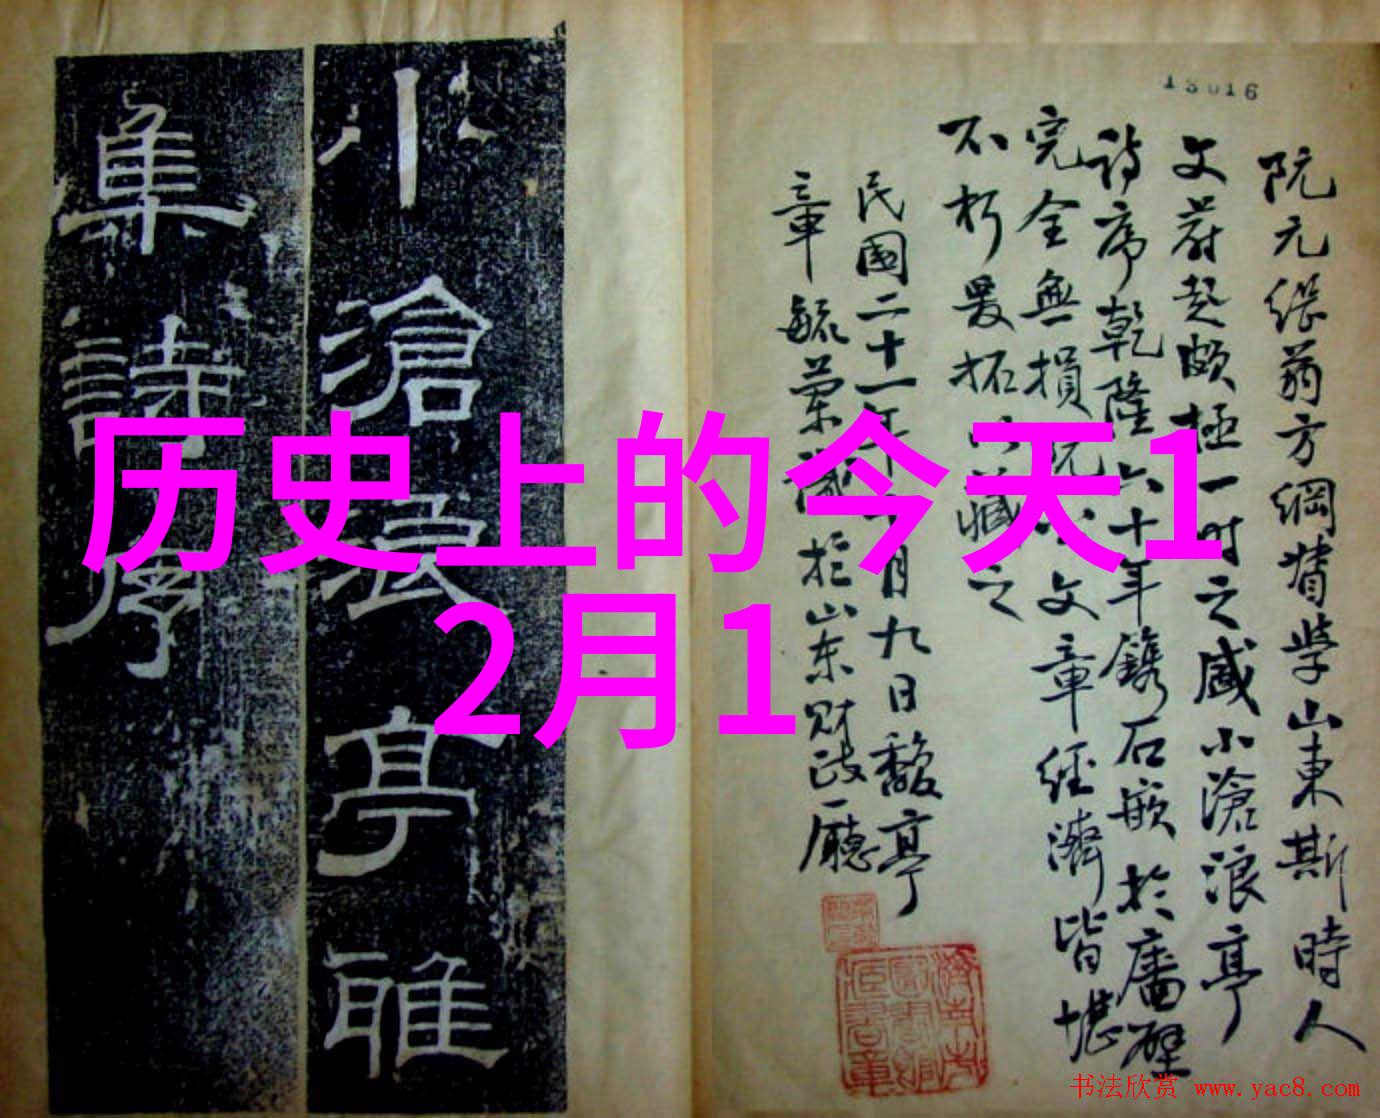 小滄浪亭雅
集詩序
13016
阮元繼翁方綱督学山東斯時人
文蔚起頗極一时之盛小滄浪亭
詩序乾隆六十年鐫石嵌於廧壁
完全無損 文章經濟皆堪
不朽爰拓 藏之
民國二十一年 月九日馥亭
章毓蘭 於山东財政廳
历史上的今天1
2月1
书法欣赏 www.yac8.com